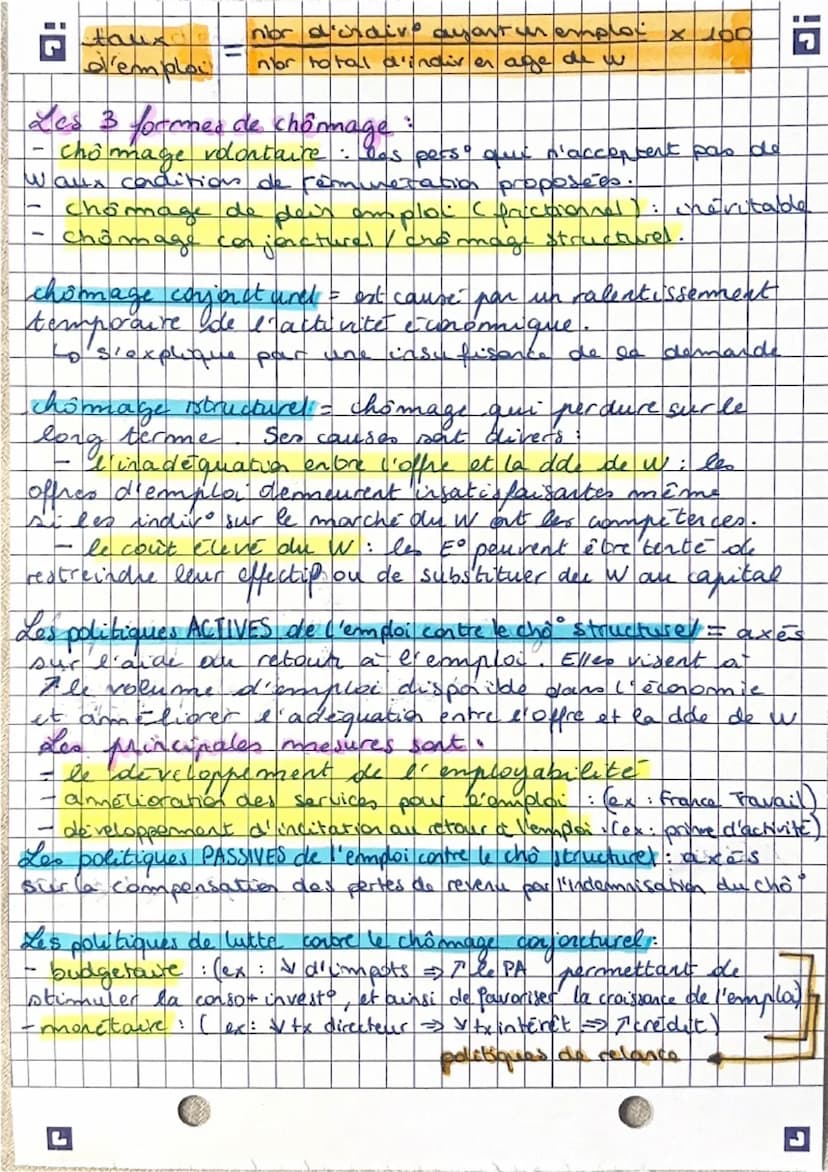 taux d'emploi = nbr d'indiv° ayant un emploi x 100
nbr total d'indiv en age de W
Les 3 formes de chômage :
- chômage volontaire : les pers° qui n'acceptent pas de
W aux conditions de rémunération proposées.
- chômage de plein emploi (frictionnel) : inévitable
- chômage conjoncturel / chômage structurel.
chômage conjoncturel = est causé par un ralentissement
temporaire de l'activité économique.
↳ s'explique par une insuffisante de la demande
chômage structurel = chômage qui perdure sur le
long terme. Ses causes sont divers :
- l'inadéquation entre l'offre et la dde de W : les
offres d'emploi demeurent insatisfaisantes même
si les indiv° sur le marché du W ont les compétences.
- le coût élevé du W : les E° peuvent être tenté de
restreindre leur effectif ou de substituer du W au capital
Les politiques ACTIVES de l'emploi contre le chô° structurel = axés
sur l'aide au retour à l'emploi. Elles visent à
↗ le volume d'emploi disponible dans l'économie
et améliorer l'adéquation entre l'offre et la dde de W
Les principales mesures sont :
- le développement de l'employabilité
- amélioration des services pour l'emploi : (ex : France Travail)
- développement d'incitation au retour à l'emploi : (ex : prime d'activité)
Les politiques PASSIVES de l'emploi contre le chô structurel : axés
sur la compensation des pertes de revenu par l'indemnisation du chô°
Les politiques de lutte contre le chômage conjoncturel :
- budgetaire : (ex : ↓ d'impots ⇒ ↗ le PA permettant de
stimuler la conso + invest°, et ainsi de favoriser la croissance de l'emploi)
- monétaire : ( ex : ↓ tx directeur ⇒ ↓ tx intérêt ⇒ ↗ crédit )
politiques de relance